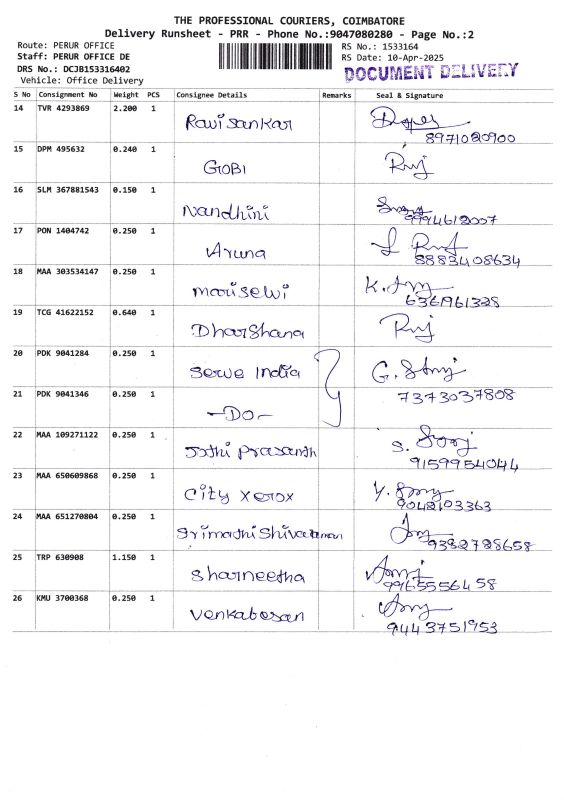 THE PROFESSIONAL COURIERS, COIMBATORE
Delivery Runsheet - PRR - Phone No.:9047080280 - Page No.:2
Route: PERUR OFFICE
Staff: PERUR OFFICE DE
DRS No.: DCJB153316402
Vehicle: Office Delivery
RS No.: 1533164
RS Date: 10-Apr-2025
DOCUMENT DELIVERY
S No Consignment No Weight PCS Consignee Details Remarks Seal & Signature
14 TVR 4293869 2.200 1 Ravisankar 8971020900
15 DPM 495632 0.240 1 GOBI
16 SLM 367881543 0.150 1 Nandhini 9994612007
17 PON 1404742 0.250 1 Aruna 8883408634
18 MAA 303534147 0.250 1 Mariselvi 636961328
19 TCG 41622152 0.640 1 Dharshana
20 PDK 9041284 0.250 1 Serve India
21 PDK 9041346 0.250 1 -DO- 7373037808
22 MAA 109271122 0.250 1 Jothi Prasanth 9159954044
23 MAA 650609868 0.250 1 City Xerox 9042103363
24 MAA 651270804 0.250 1 Srimathi Shivaraman 9382728658
25 TRP 630908 1.150 1 Sharneetha 9965556458
26 KMU 3700368 0.250 1 Venkatesan 9443751953